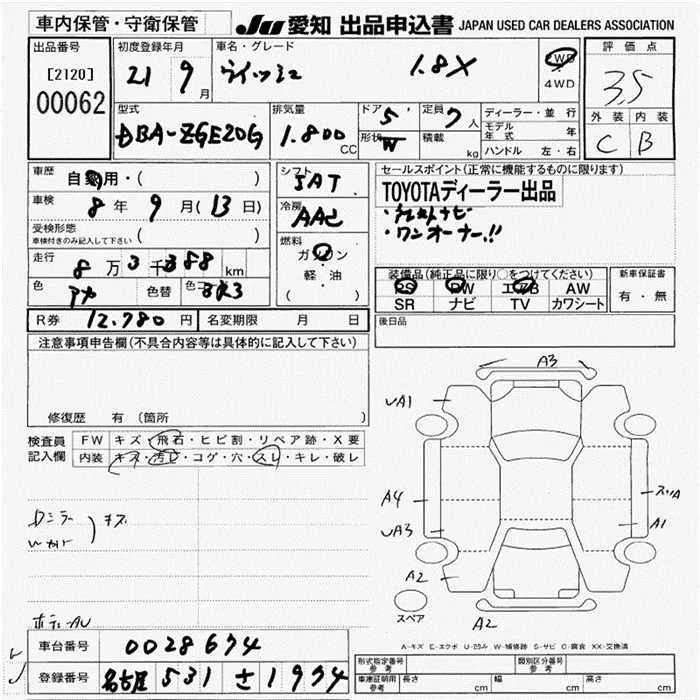 車内保管・守衛保管
JU 愛知 出品申込書 JAPAN USED CAR DEALERS ASSOCIATION
出品番号
[2120]
00062
初度登録年月
21 9月
車名・グレード
ウィッシュ 1.8X
2WD
4WD
評価点
3.5
外装 内装
C B
型式
DBA-ZGE20G
排気量
1.800 CC
ドア 5
形状 W
定員 7人
積載 kg
ディーラー・並行
モデル年式 年
ハンドル 左・右
車歴 自家用・( )
車検 8年 9月(13日)
受検形態
車検付きのみ記入して下さい ( )
走行 8万3千388km
色 アカ 色替 色コード 3R3
シフト 5AT
冷房 AAC
燃料
ガソリン
軽・油
( )
セールスポイント(正常に機能するものに限ります)
TOYOTAディーラー出品
・ナビ
・ワンオーナー!!
装備品(純正品に限り○をつけてください)
PS PW エアB AW
SR ナビ TV カワシート
新車保証書
有・無
R券 12,780円 名変期限 月 日
後日品
注意事項申告欄(不具合内容等は具体的に記入して下さい)
修復歴 有(箇所
検査員記入欄
FW キズ・飛石・ヒビ割・リペア跡・X要
内装 キズ・汚レ・コゲ・穴・スレ・キレ・破レ
キズ
A3
UA1
A4
UA3
A2
A1
A2
スペア
A-キズ E-エクボ U-凹み W-補修跡 S-サビ C-腐食 XX-交換済
車台番号 0028674
登録番号 名古屋 531 さ 1974
形式指定番号 参考
類別区分番号 参考
車庫証明用 参考 長さ cm 幅 cm 高さ cm